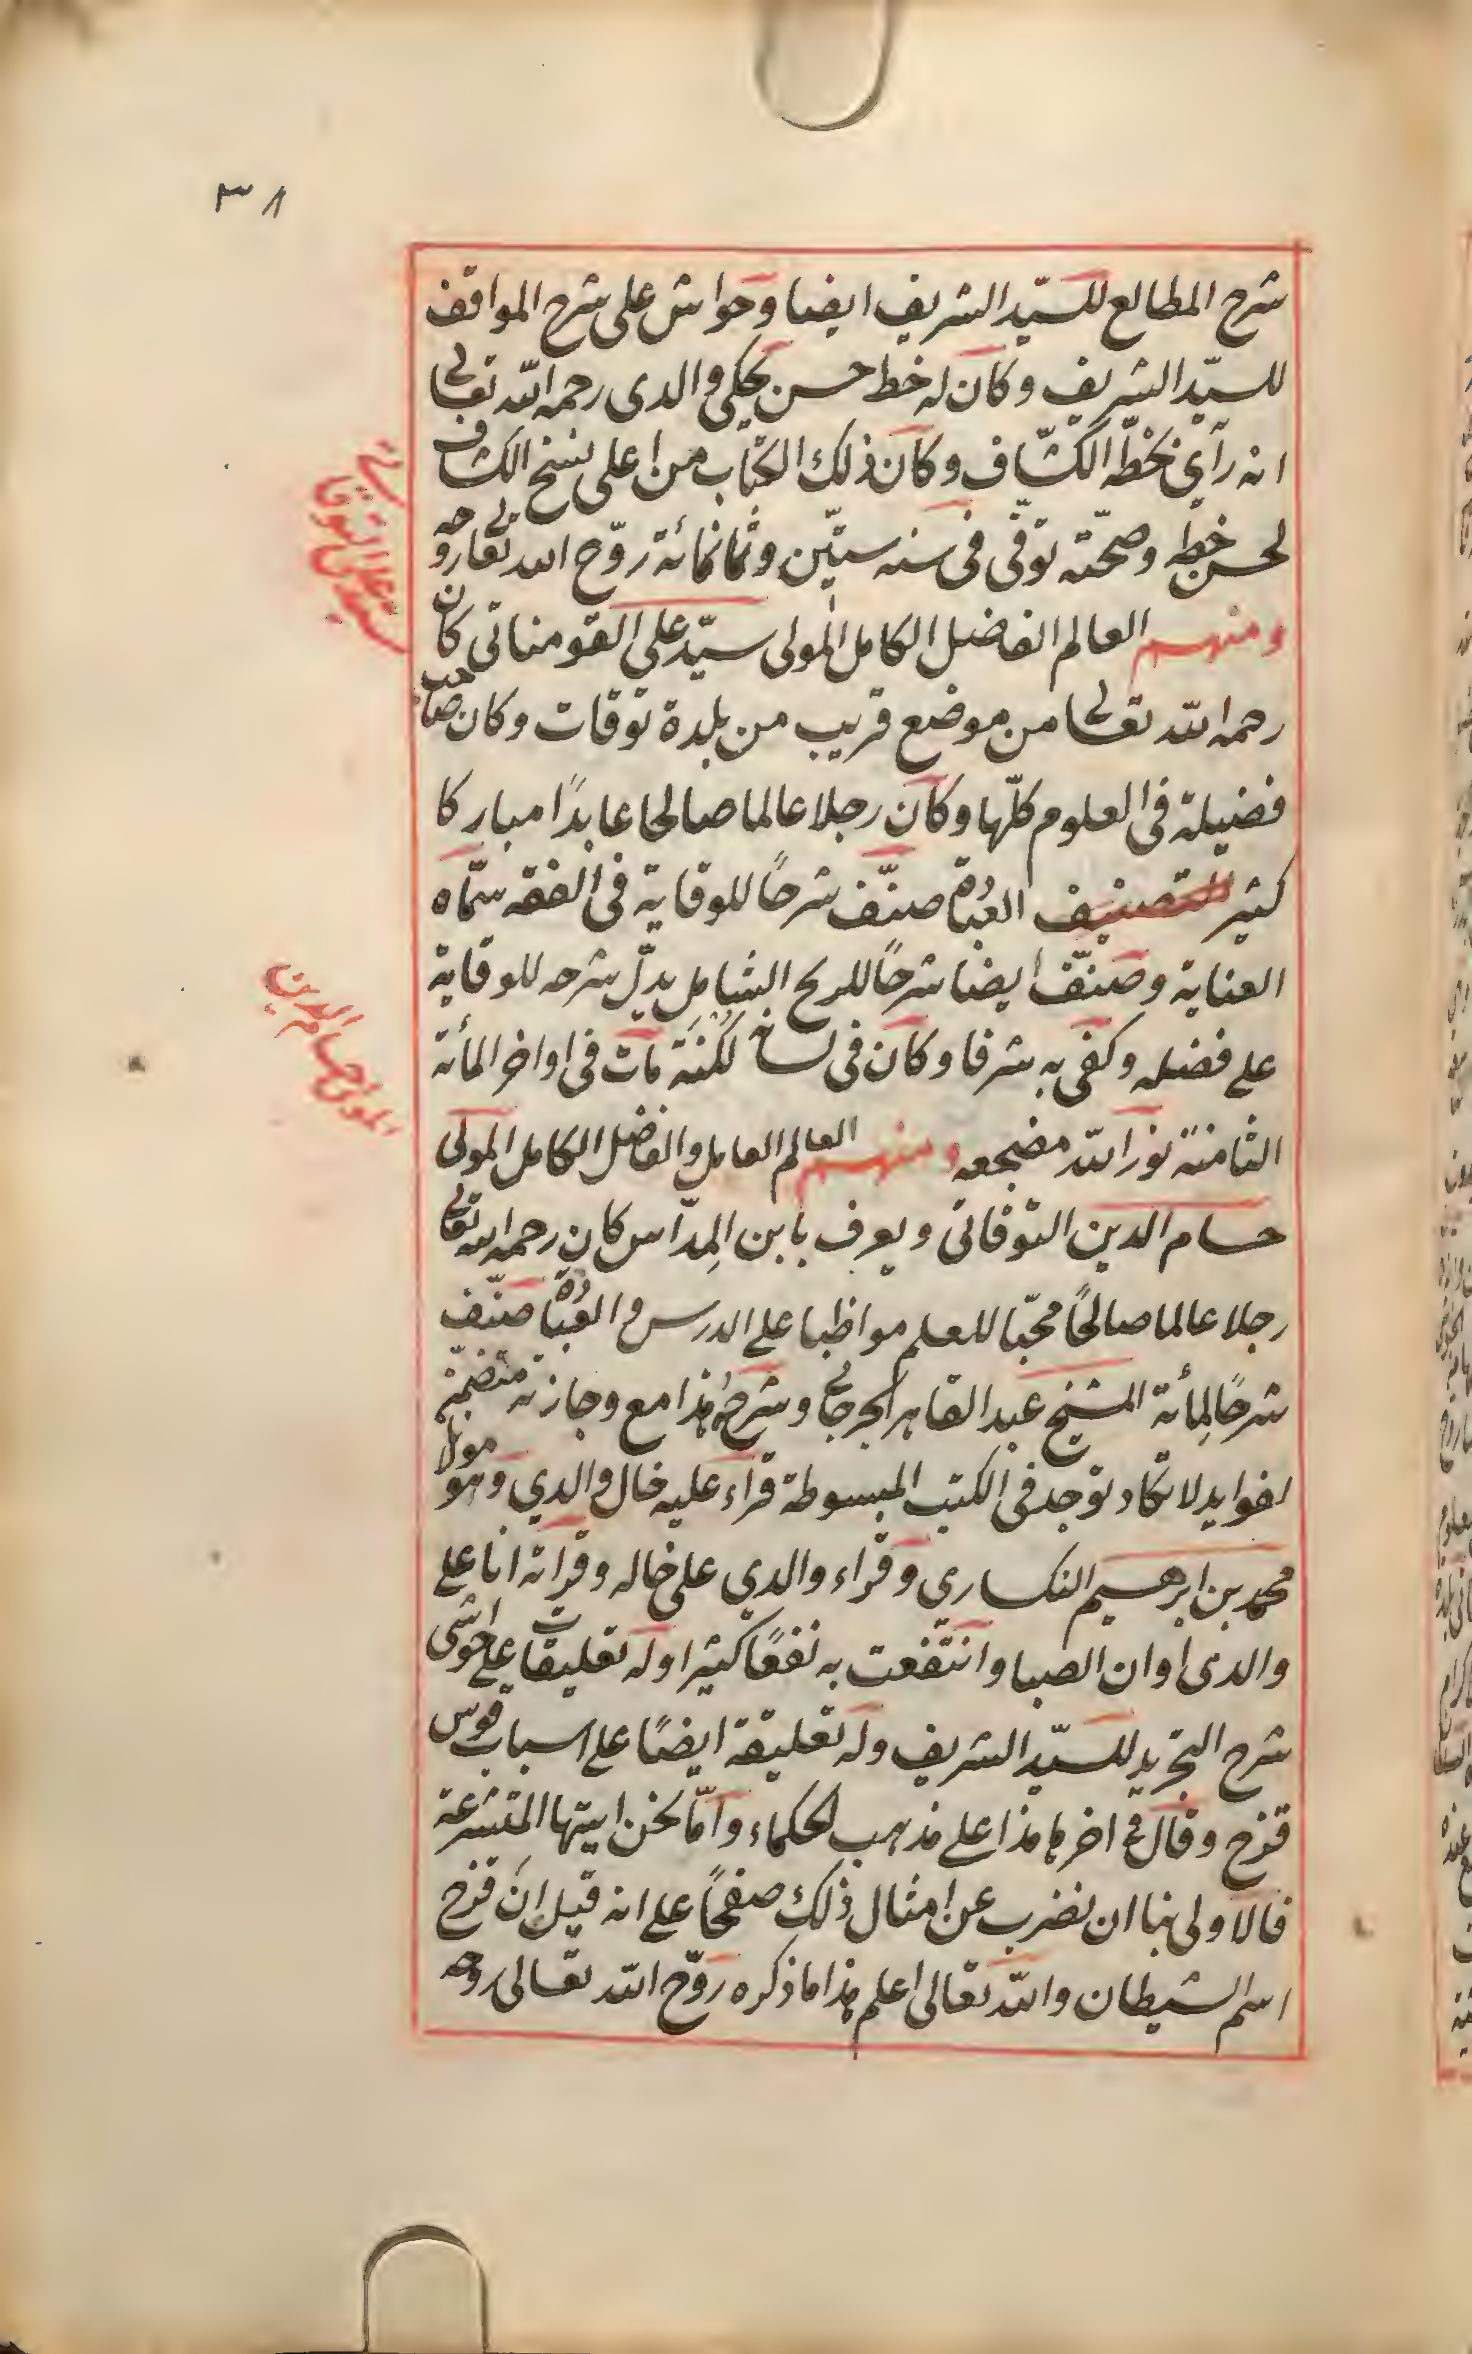 ٣٨
شرح المطالع للسيّد الشريف ايضا وحواش على شرح المواقف
للسيّد الشريف وكان له خط حسن يحكى والدى رحمه الله تعالى
انه رآى بخطّه الكشّاف وكان ذلك الكتاب من اعلى نسخ الكشاف
لحسن خطه وصحّته توفّى فى سنه ستّين وثمانمائة روّح الله تعالى روحه
ومنهم العالم الفاضل الكامل المولى سيّد على القومناتى كان
رحمه الله تعالى من موضع قريب من بلدة توقات وكان صاحب
فضيلة فى العلوم كلّها وكان رجلا عالما صالحا عابدًا مباركا
كثير التصنيف العُبادة صنّف شرحًا للوقاية فى الفقه سمّاه
العناية وصنّف ايضا شرحًا للريح الشامل يدلّ شرحه للوقاية
على فضله وكفى به شرفا وكان فى لسانه لُكنَة مات فى اواخر المأئة
الثامنة نوّر الله مضجعه ومنهم العالم العامل والفاضل الكامل المولى
حسام الدين التوقاتى ويعرف بابن المِدّاس كان رحمه الله تعالى
رجلا عالما صالحًا محبّا للعلم مواظبا على الدرس والعُبادة صنّف
شرحًا لِمأئة الشيخ عبد القاهر الجرجانى وشرحُهُ هذا مع وجازته متضمّن
لفوايد لا تكاد توجد فى الكتب المبسوطة قرآء عليه خال والدي وهو مولانا
محمد بن ابرهيم النكسارى وقراء والدي على خاله وقرآته انا على
والدى اوان الصبا وانتفعت به نفعًا كثيرا وله تعليقات على حواشى
شرح التجريد للسيّد الشريف وله تعليقة ايضًا على اسباب قوس
قزح وقال فى اخرها هذا على مذهب الحكماء وامّا نحن ايتها المتشرعة
فالاولى بنا ان نضرب عن امثال ذلك صفحًا على انه قيل ان قزح
اسم الشيطان والله تعالى اعلم هذا ما ذكره روّح الله تعالى روحه
سيد على التوقاتى
المولى حسام الدين